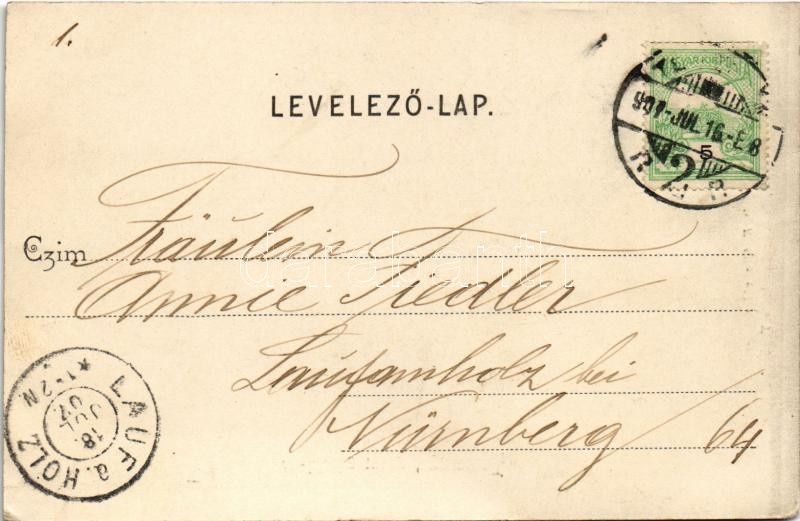 1.
MAGYAR KIR. POSTA
5
907-JUL.16-E.8
2
LEVELEZŐ-LAP.
Czim
Fräulein
Annie Fiedler
Laufamholz bei
Nürnberg 64
LAUF a. HOLZ
18 JUL 07
* 1-2N
darabanth